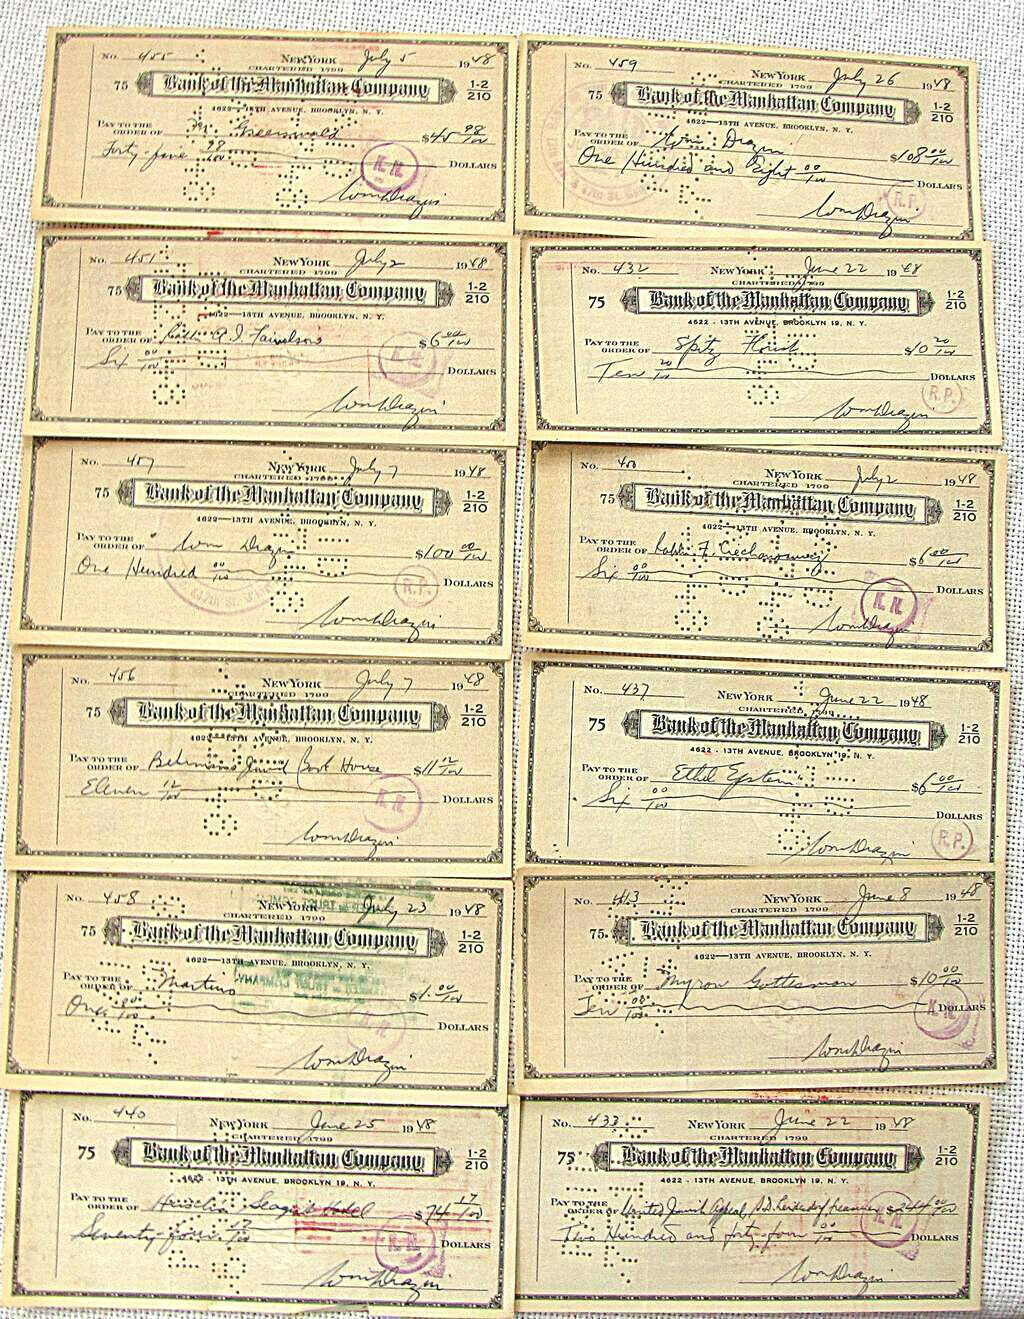 No. 455 New York July 5 1948
CHARTERED 1799
75 Bank of the Manhattan Company 1-2/210
4622—13TH AVENUE, BROOKLYN, N. Y.
PAY TO THE ORDER OF Greenwald $45 98/100
Forty-five 98/100 DOLLARS
N. N.
Wm Drazin
No. 459 New York July 26 1948
CHARTERED 1799
75 Bank of the Manhattan Company 1-2/210
4622—13TH AVENUE, BROOKLYN, N. Y.
PAY TO THE ORDER OF Wm Drazin $108 00/100
One Hundred and Eight 00/100 DOLLARS
R. P.
Wm Drazin
No. 451 New York July 2 1948
CHARTERED 1799
75 Bank of the Manhattan Company 1-2/210
4622—13TH AVENUE, BROOKLYN, N. Y.
PAY TO THE ORDER OF Rabbi A. I. $6 00/100
Six 00/100 DOLLARS
N. N.
Wm Drazin
No. 432 New York June 22 1948
CHARTERED 1799
75 Bank of the Manhattan Company 1-2/210
4622 - 13TH AVENUE, BROOKLYN 19, N. Y.
PAY TO THE ORDER OF Spitz Florist $10 20/100
Ten 20/100 DOLLARS
R. P.
Wm Drazin
No. 457 New York July 7 1948
CHARTERED 1799
75 Bank of the Manhattan Company 1-2/210
4622—13TH AVENUE, BROOKLYN, N. Y.
PAY TO THE ORDER OF Wm Drazin $100 00/100
One Hundred 00/100 DOLLARS
R. P.
Wm Drazin
No. 450 New York July 2 1948
CHARTERED 1799
75 Bank of the Manhattan Company 1-2/210
4622—13TH AVENUE, BROOKLYN, N. Y.
PAY TO THE ORDER OF Rabbi F. $6 00/100
Six 00/100 DOLLARS
N. N.
Wm Drazin
No. 456 New York July 7 1948
CHARTERED 1799
75 Bank of the Manhattan Company 1-2/210
4622—13TH AVENUE, BROOKLYN, N. Y.
PAY TO THE ORDER OF Behrmans Jewish Book House $11 12/100
Eleven 12/100 DOLLARS
N. N.
Wm Drazin
No. 437 New York June 22 1948
CHARTERED 1799
75 Bank of the Manhattan Company 1-2/210
4622 - 13TH AVENUE, BROOKLYN 19, N. Y.
PAY TO THE ORDER OF Ethel Epstein $6 00/100
Six 00/100 DOLLARS
R. P.
Wm Drazin
No. 458 New York July 23 1948
CHARTERED 1799
75 Bank of the Manhattan Company 1-2/210
4622—13TH AVENUE, BROOKLYN, N. Y.
PAY TO THE ORDER OF Martins $1. 00/100
One 00/100 DOLLARS
N. N.
Wm Drazin
No. 413 New York June 8 1948
CHARTERED 1799
75 Bank of the Manhattan Company 1-2/210
4622—13TH AVENUE, BROOKLYN, N. Y.
PAY TO THE ORDER OF Myron Gottesman $10 00/100
Ten 00/100 DOLLARS
N. N.
Wm Drazin
No. 440 New York June 25 1948
CHARTERED 1799
75 Bank of the Manhattan Company 1-2/210
4622 - 13TH AVENUE, BROOKLYN 19, N. Y.
PAY TO THE ORDER OF Seagate Hotel $74 17/100
Seventy-four 17/100 DOLLARS
N. N.
Wm Drazin
No. 433 New York June 22 1948
CHARTERED 1799
75 Bank of the Manhattan Company 1-2/210
4622 - 13TH AVENUE, BROOKLYN 19, N. Y.
PAY TO THE ORDER OF United Jewish Appeal, $244 00/100
Two Hundred and forty-four 00/100 DOLLARS
N. N.
Wm Drazin